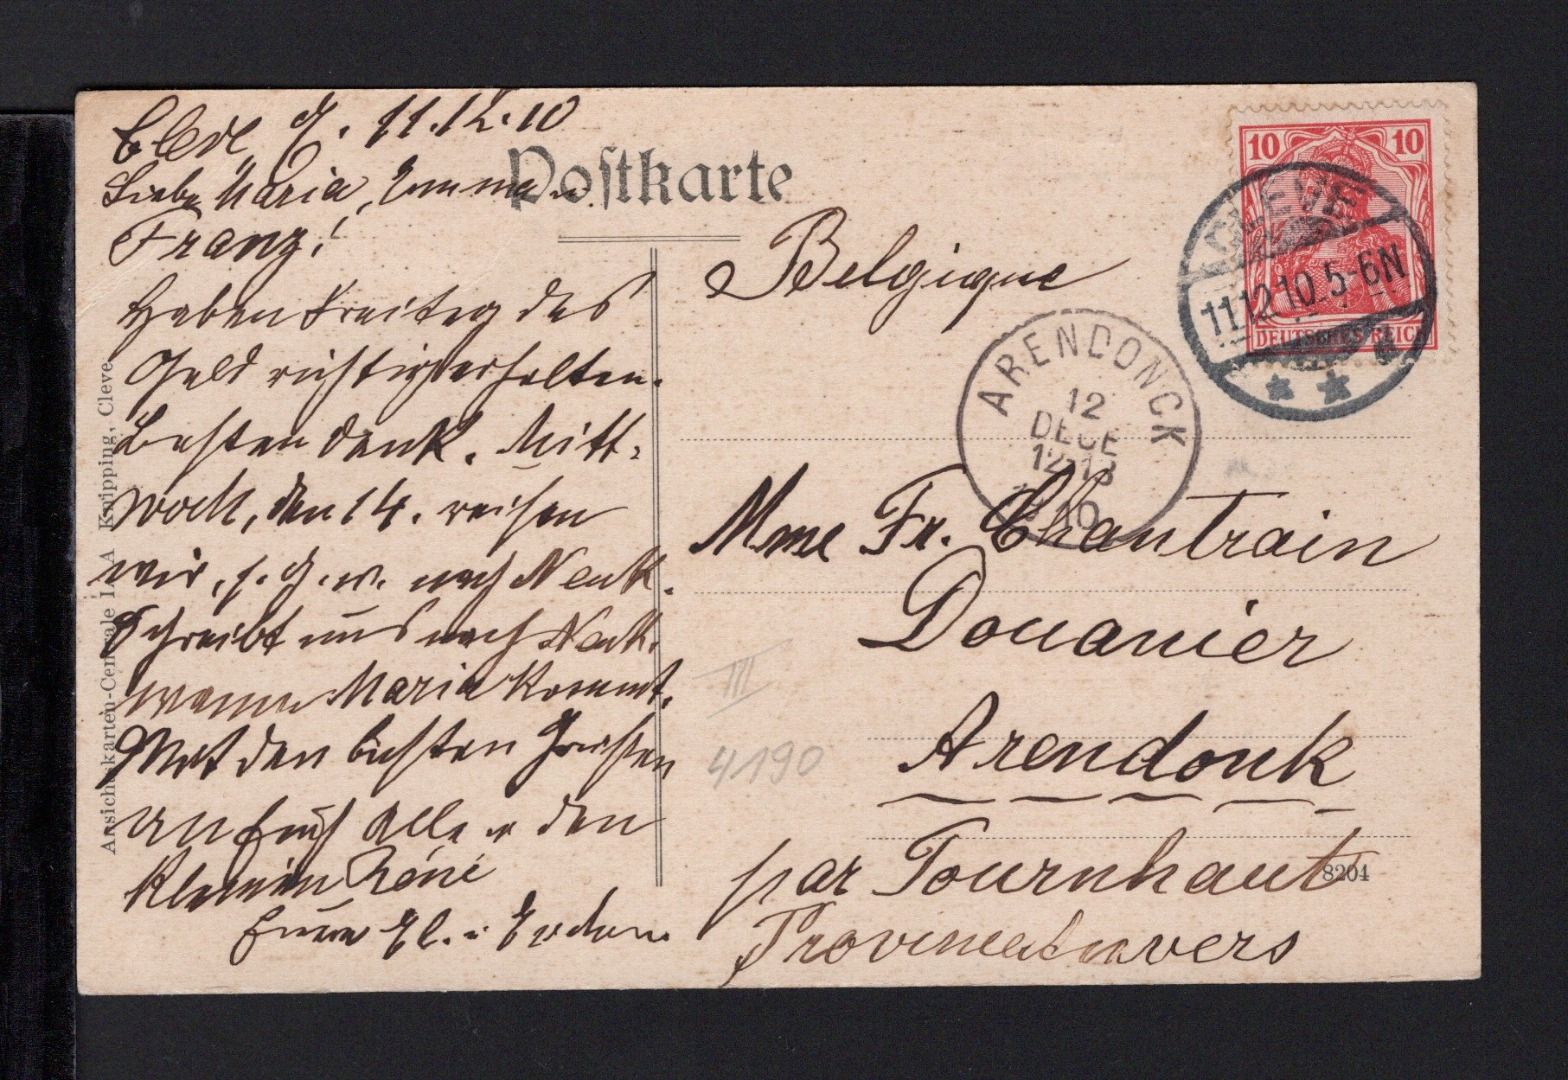 d. 11.12.10
Liebe Maria, Emma u.
Franz!
Haben Freitag das
Geld richtig erhalten.
Besten Dank. Mitt-
woch, den 14. reisen
wir, s. G. w. nach
Schreibt uns nach
wann Maria kommt.
Mit den besten Grüssen
an Euch Alle u. den
kleinen Réné
Eure
Postkarte
Belgique
Mme Fr. Chantrain
Douanier
Arendonk
par Tournhaut
Province Anvers
10 10
DEUTSCHES REICH
CLEVE
11.12.10.5-6N
* *
ARENDONCK
12
DECE
10
III
4190
8204
Ansichtskarten-Centrale A Knipping, Cleve.